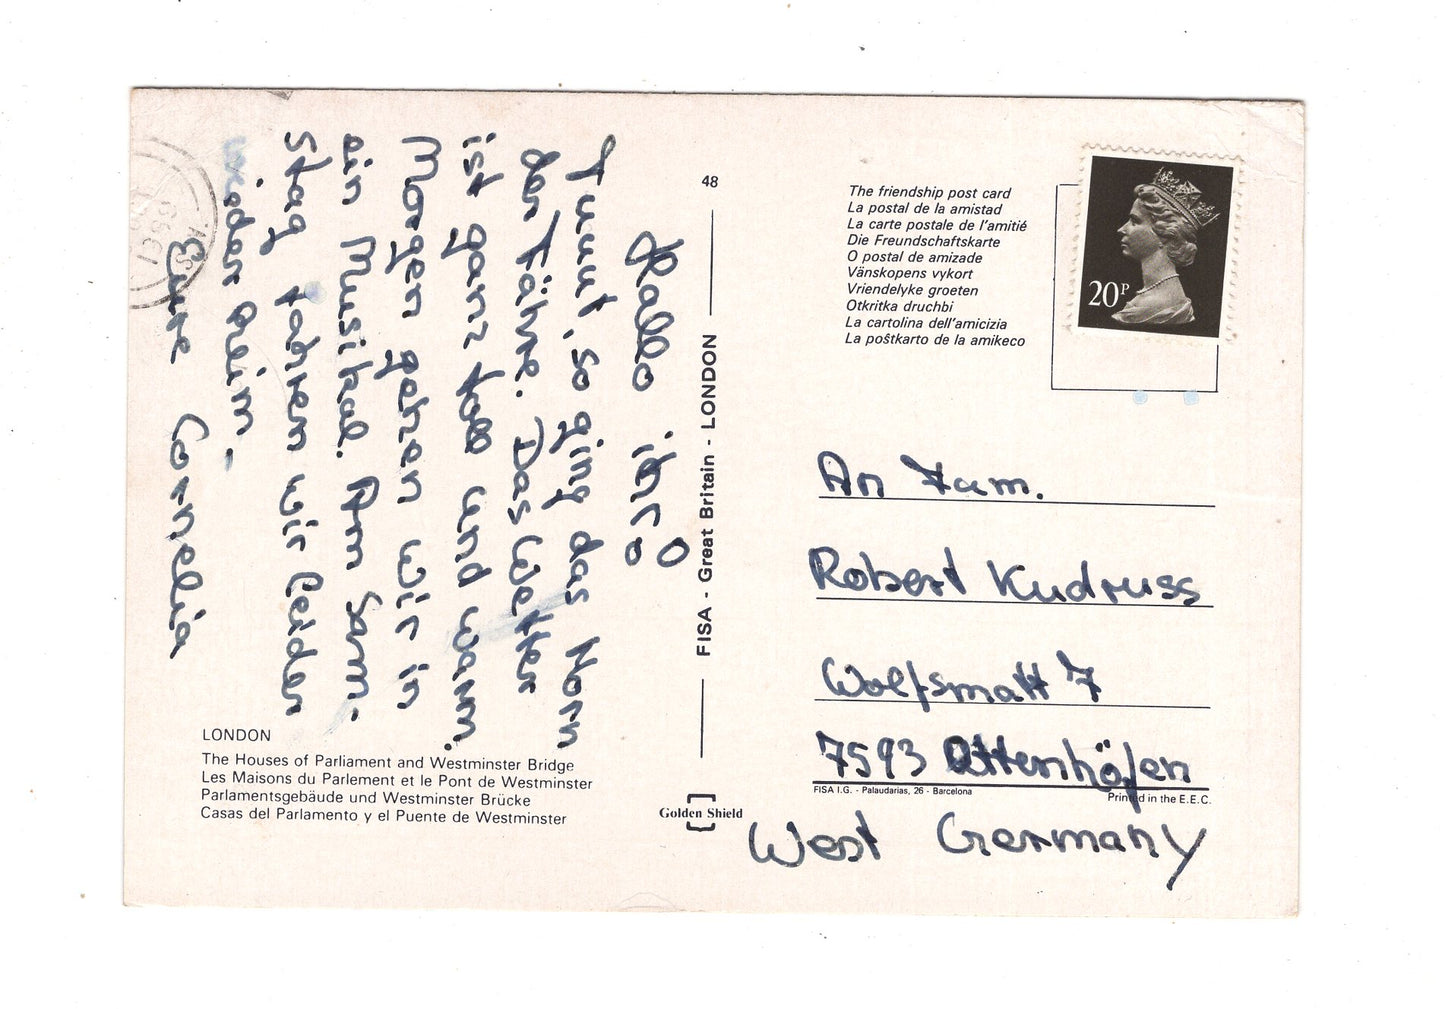 Hallo ihr!
Tuuut, so ging das Horn
der Fähre. Das Wetter
ist ganz toll und warm.
Morgen gehen wir in
ein Musikal. Am Sam-
stag fahren wir leider
wieder heim. -
Eure Cornelia
LONDON
The Houses of Parliament and Westminster Bridge
Les Maisons du Parlement et le Pont de Westminster
Parlamentsgebäude und Westminster Brücke
Casas del Parlamento y el Puente de Westminster
48
FISA - Great Britain - LONDON
Golden Shield
The friendship post card
La postal de la amistad
La carte postale de l'amitié
Die Freundschaftskarte
O postal de amizade
Vänskopens vykort
Vriendelyke groeten
Otkritka druchbi
La cartolina dell'amicizia
La poŝtkarto de la amikeco
20P
An Fam.
Robert Kudruss
Wolfsmatt 7
7593 Ottenhöfen
FISA I.G. - Palaudarias, 26 - Barcelona
Printed in the E.E.C.
West Germany